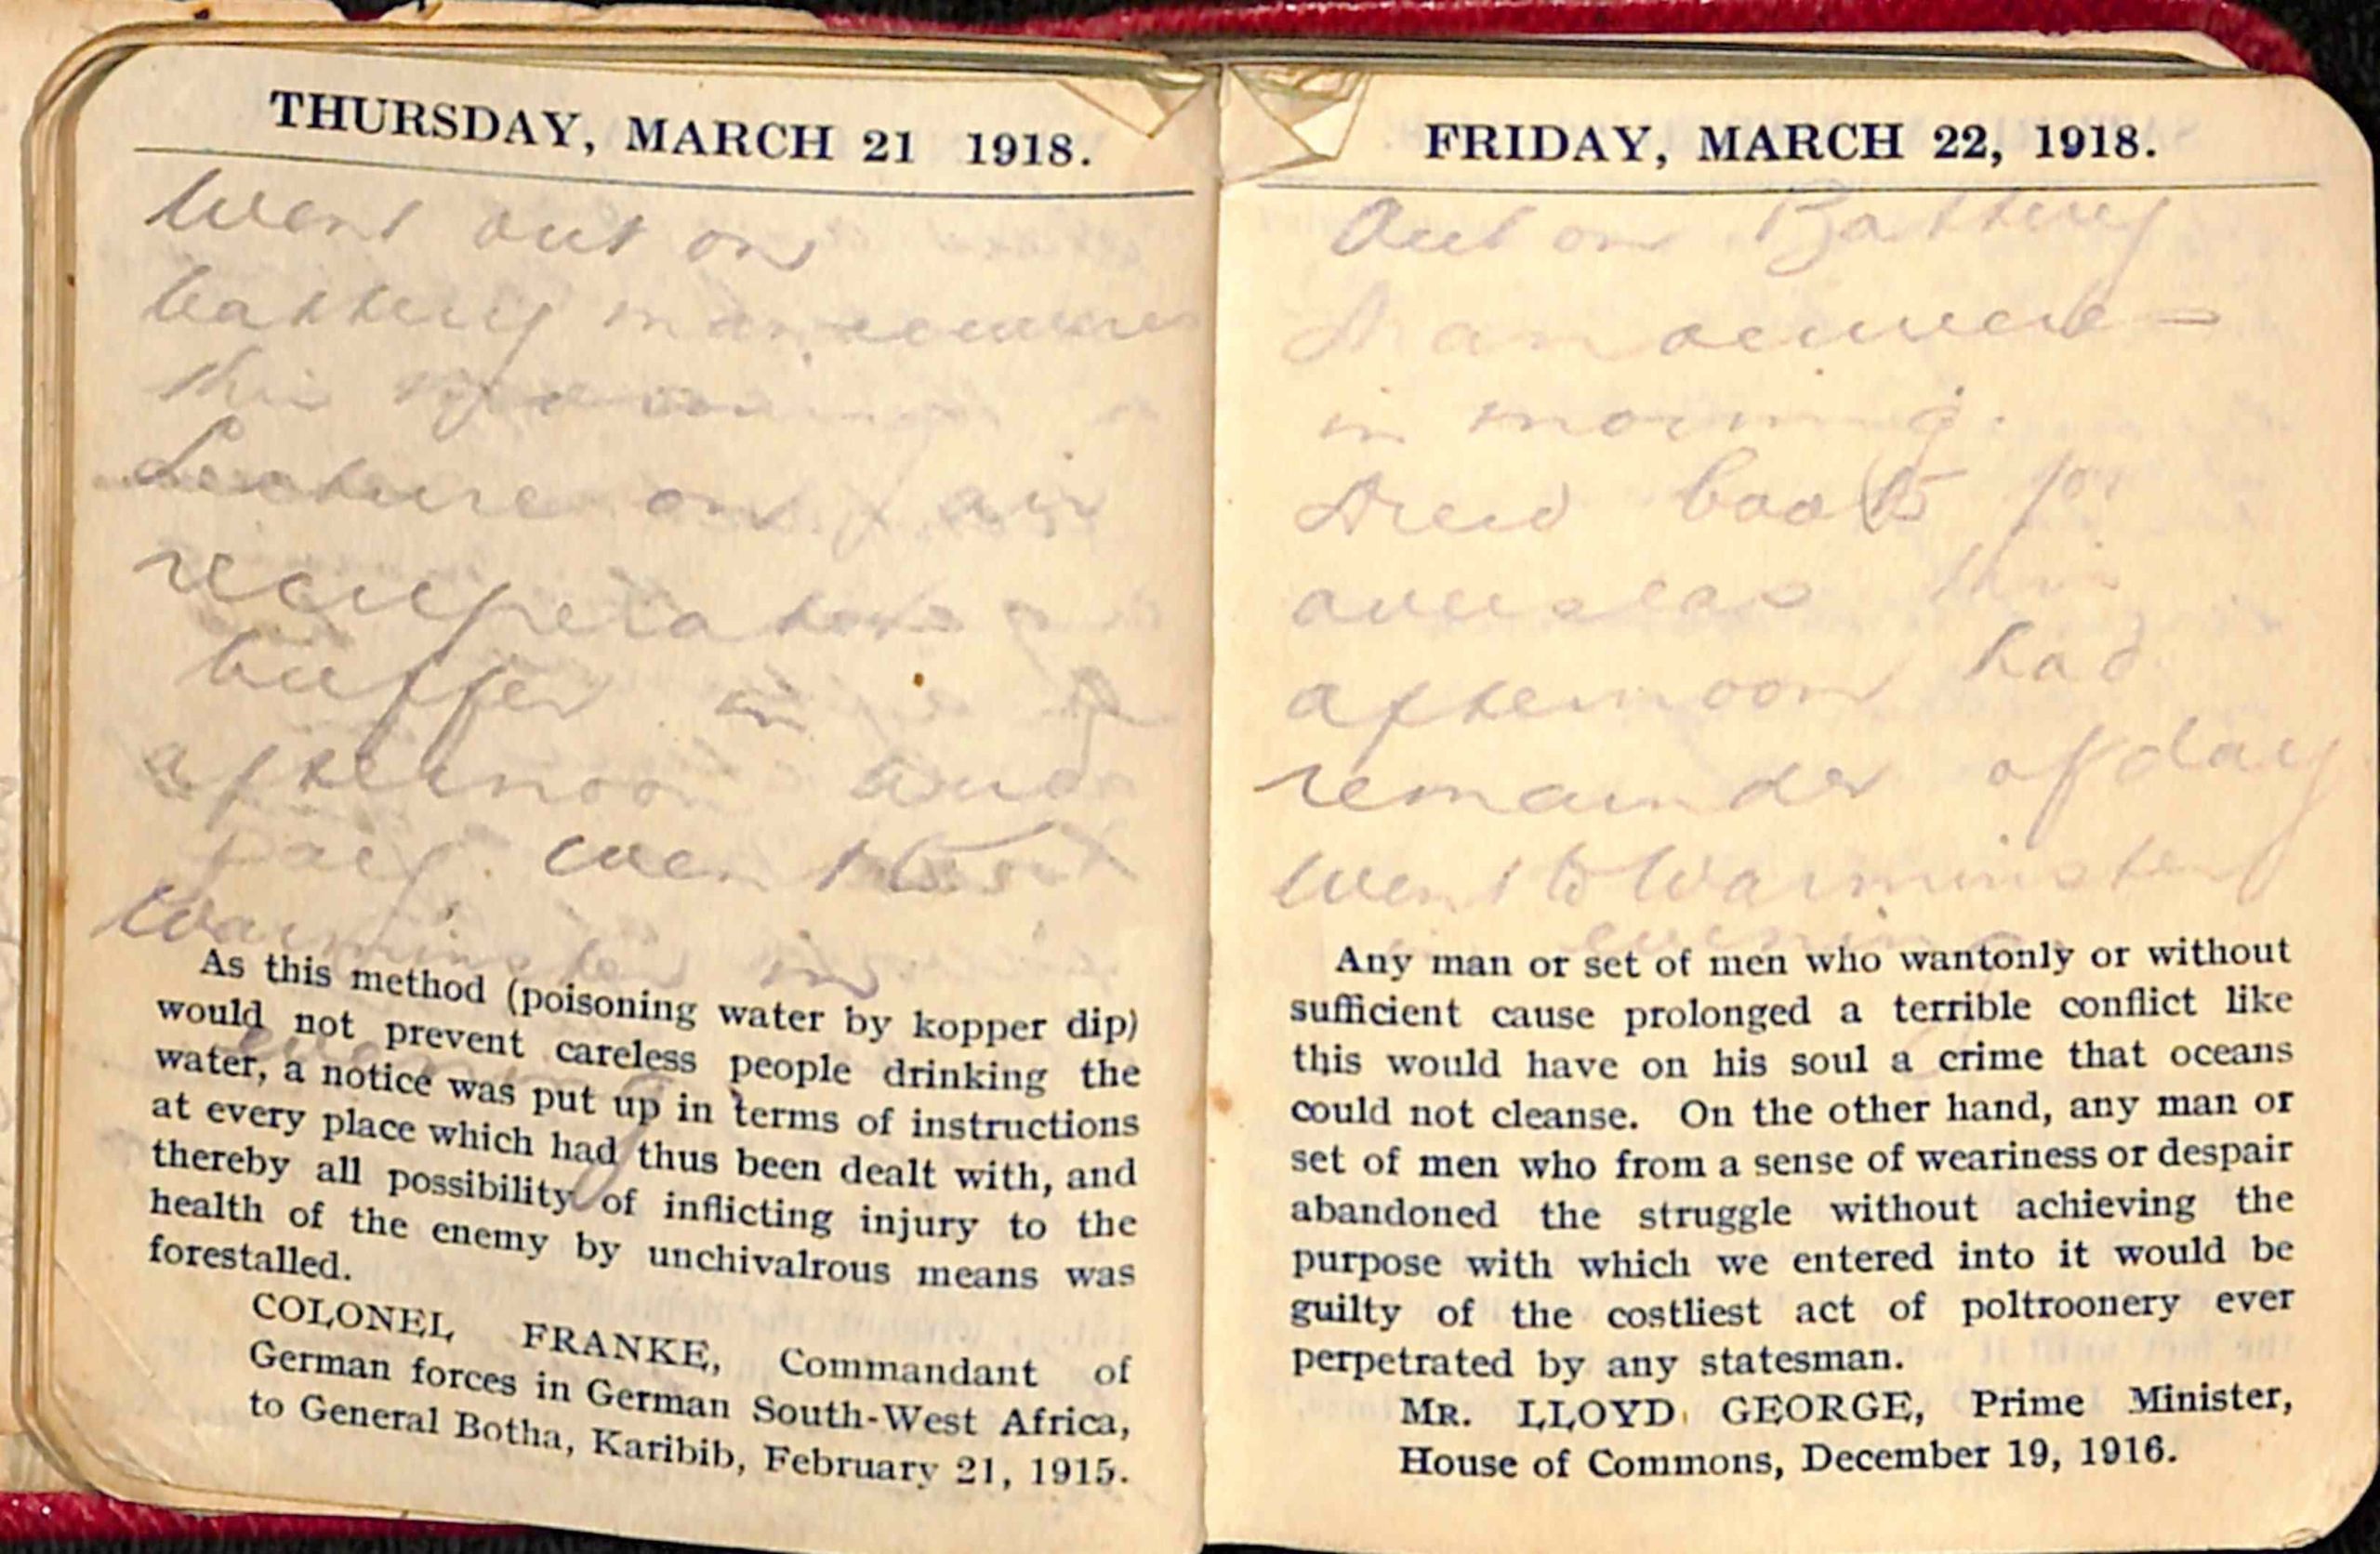 THURSDAY, MARCH 21 1918.
Went out on
battery manoeuvres
this
Lecture on air
recuperator
buffer in
afternoon and
Day. went to
Warminster in
evening
As this method (poisoning water by kopper dip)
would not prevent careless people drinking the
water, a notice was put up in terms of instructions
at every place which had thus been dealt with, and
thereby all possibility of inflicting injury to the
health of the enemy by unchivalrous means was
forestalled.
COLONEL FRANKE, Commandant of
German forces in German South-West Africa,
to General Botha, Karibib, February 21, 1915.
FRIDAY, MARCH 22, 1918.
Out on Battery
Manoeuvre
in morning.
Drew boots for
overseas this
afternoon had
remainder of day
Went to Warminster
in evening
Any man or set of men who wantonly or without
sufficient cause prolonged a terrible conflict like
this would have on his soul a crime that oceans
could not cleanse. On the other hand, any man or
set of men who from a sense of weariness or despair
abandoned the struggle without achieving the
purpose with which we entered into it would be
guilty of the costliest act of poltroonery ever
perpetrated by any statesman.
MR. LLOYD GEORGE, Prime Minister,
House of Commons, December 19, 1916.